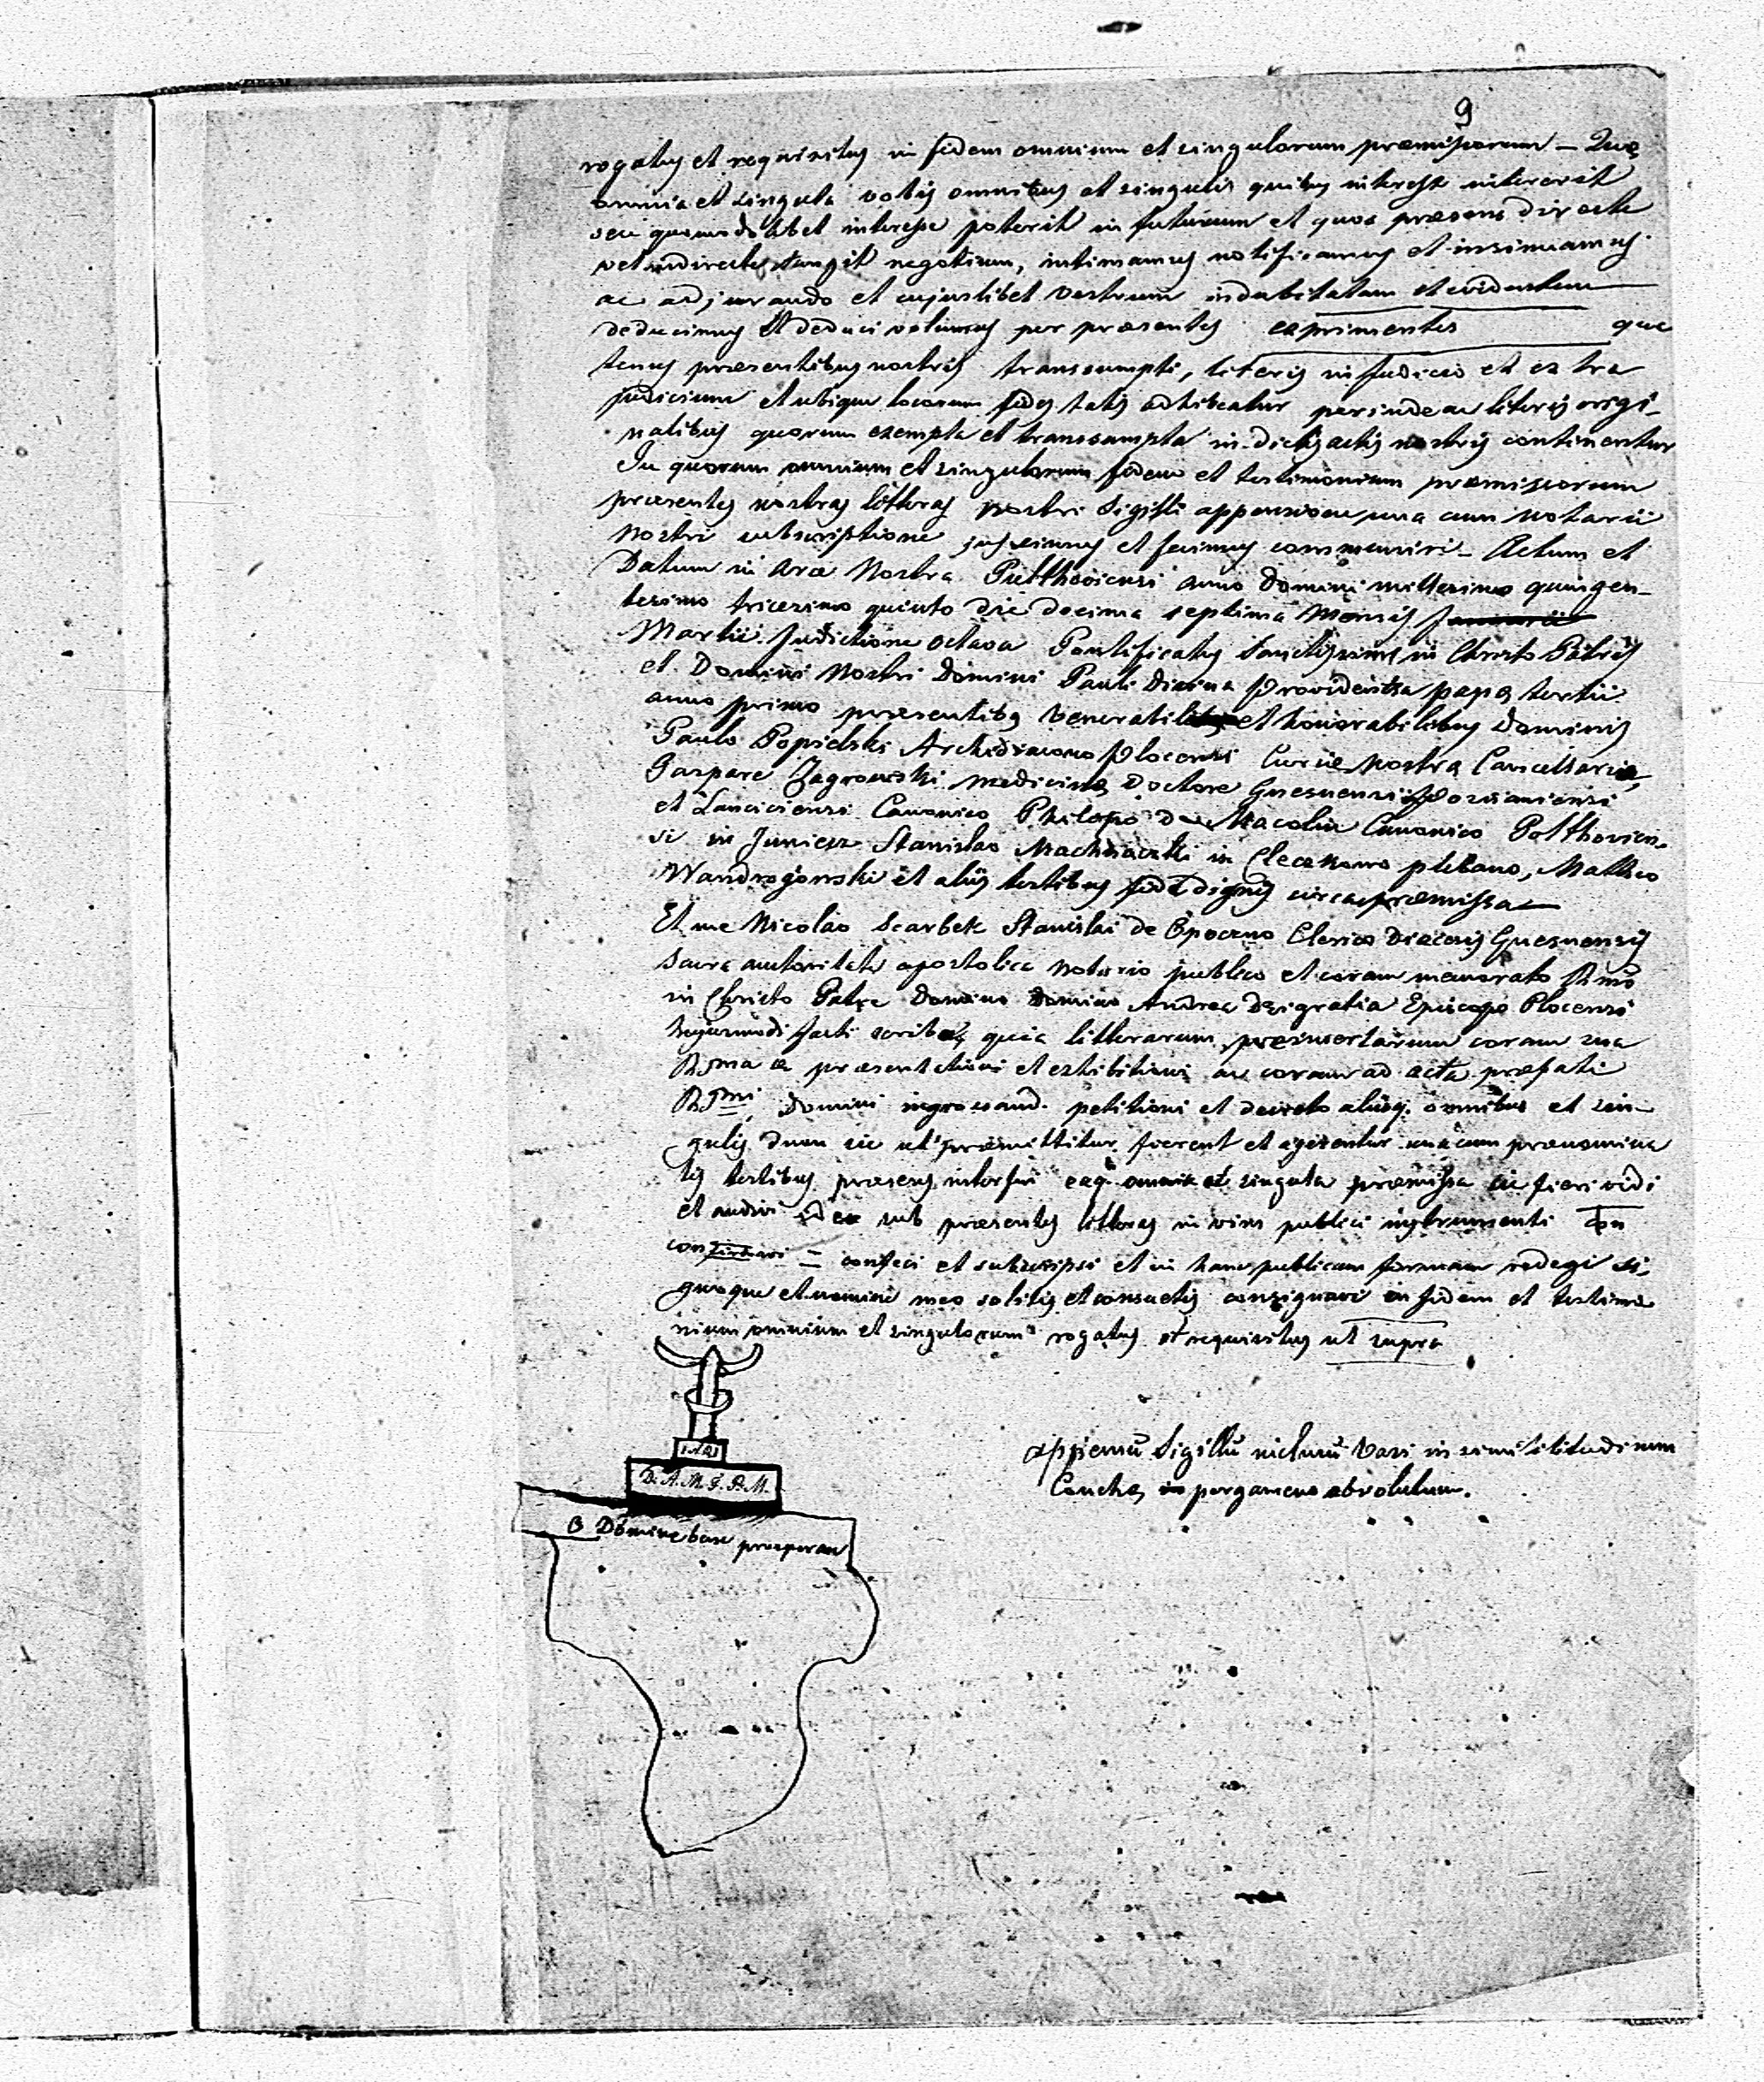 9
rogatus et requisitus in fidem omnium et singulorum præmissorum – Quæ
omnia et singula vobis omnibus et singulis quibus interest intererit
seu quomodolibet interesse poterit in futurum et quos præsens directe
vel indirecte tangit negotium, intimamus notificamus et insinuamus
ac adjurando et cujuslibet vestrum indubitatam et evidentem
deducimus et deduci volumus per præsentes exprimentes qua
tenus præsentibus nostris transsumpti, literis in judicio et extra
judicium et ubique locorum fides talis adhibeatur perinde ac literis origi-
nalibus quorum exempla et transsumpta in dictis actis nostris continentur
In quorum omnium et singulorum fidem et testimonium præmissorum
præsentes nostras litteras nostri Sigilli appensione una cum Notarii
Nostri subscriptione jussimus et fecimus communiri – Actum et
Datum in Arce Nostra Pulthoviensi anno Domini millesimo quingen-
tesimo tricesimo quinto die decima septima Mensis Januarii
Martii Indictione octava Pontificatus Sanctissimi in Christo Patris
et Domini Nostri Domini Pauli Divina Providentia papæ tertii
anno primo præsentibus Venerabilibus et honorabilibus Dominis
Paulo Popielski Archidiacono Plocensi Curiæ Nostræ Cancellario,
Gaspare Zagrowski medicinæ Doctore Gnesnensi Posnaniensi
et Lanciciensi Canonico Philipo de Macolin Canonico Polthovien-
si in Juniesz Stanislao Machnacki in Clecanowo plebano, Mattheo
Wandrogowski et aliis testibus fide dignis circa præmissa
Et me Nicolao Scarbek Stanislai de Opoczno Clerico Diæcesis Gnesnensis
sacra autoritate apostolica Notario publico et coram memorato Rmo
in Christo Patre Domino Domino Andrea Dei gratia Episcopo Plocensi
hujusmodi facti scriba, quia litterarum præinsertarum coram sua
Rsma præsentationi et exhibitioni ac earum ad acta præfati
RSmi Domini ingrossand. petitioni et decreto aliisq. omnibus et sin-
gulis dum sic ut præmittitur fierent et agerentur una cum prænomina
tis testibus præsens interfui eaq. omnia et singula præmissa sic fieri vidi
et audivi ideo sub præsentes litteras in vim publici instrumenti con
= confeci et subscripsi et in hanc publicam formam redegi si,
gnoque et nomine meo solitis et consuetis consignavi in fidem et testimo
nium omnium et singulorum rogatus et requisitus ut supra
INRI
D. A. M. G. P. M.
O Domine bene prosperare
appensu Sigillu nicturu Vasi in similitudinem
Conchæ in pergameno obvolutum.